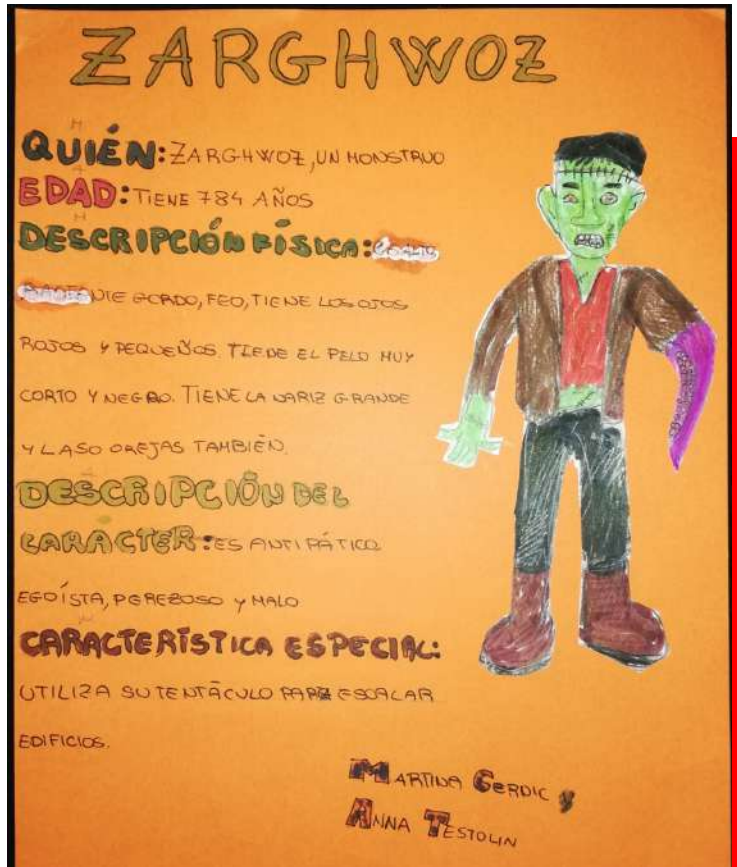 ZARGHWOZ
QUIÉN: ZARGHWOZ, UN MONSTRUO
EDAD: TIENE 784 AÑOS
DESCRIPCIÓN FÍSICA:
GORDO, FEO, TIENE LOS OJOS
ROJOS Y PEQUEÑOS. TIENE EL PELO MUY
CORTO Y NEGRO. TIENE LA NARIZ GRANDE
Y LASO OREJAS TAMBIÉN.
DESCRIPCIÓN DEL
CARÁCTER: ES ANTIPÁTICO
EGOÍSTA, PEREZOSO Y MALO
CARACTERÍSTICA ESPECIAL:
UTILIZA SU TENTÁCULO PARA ESCALAR
EDIFICIOS.
MARTINA GERDIC Y
ANNA TESTOLIN